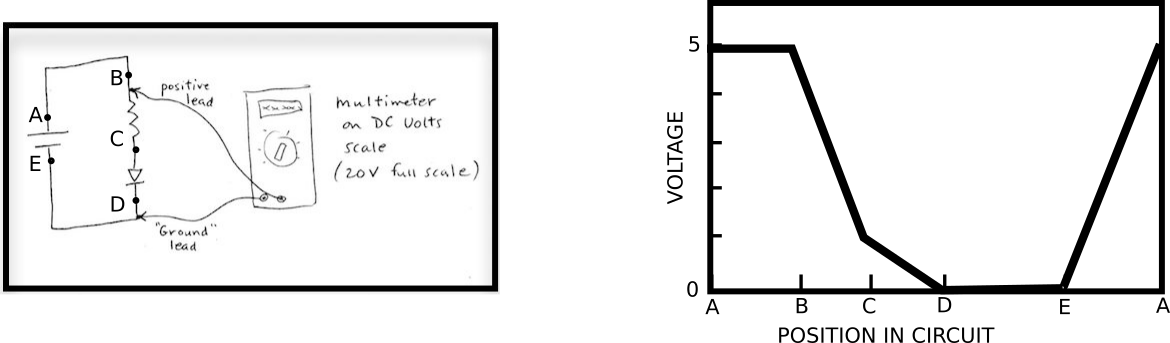 B
positive
lead
A
C
E
D
"Ground"
lead
multimeter
on DC Volts
scale
(20V full scale)
5
VOLTAGE
0
A B C D E A
POSITION IN CIRCUIT